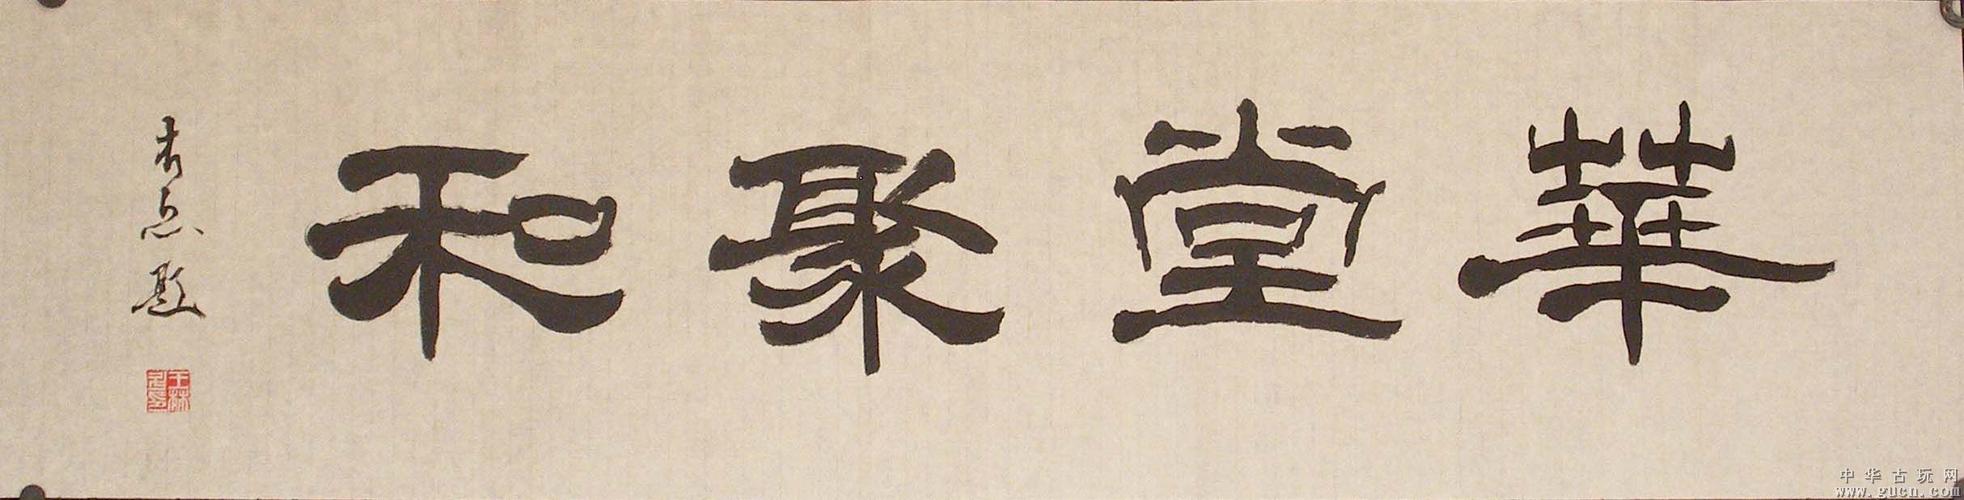 華堂聚和
題
中华古玩网
www.gucn.com